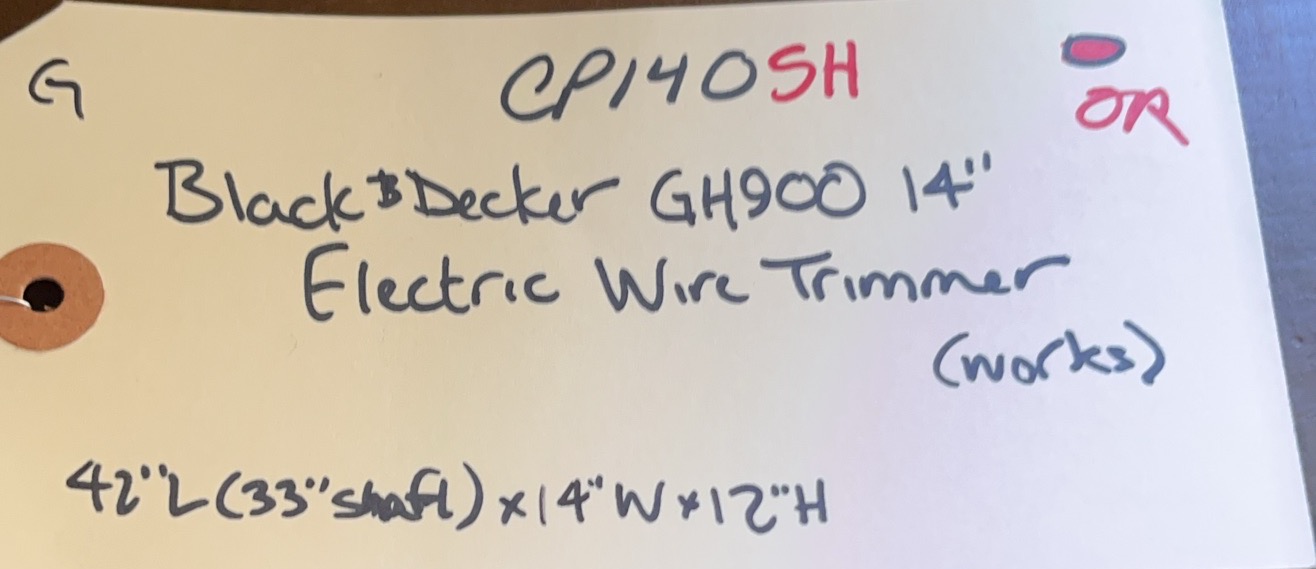 G CP140SH
OR
Black & Decker GH900 14"
Electric Wire Trimmer
(works)
42"L (33" shaft) x 14" W x 12" H